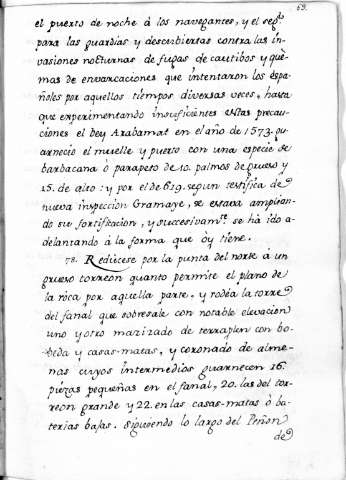 63.
el puerto de noche á los navegantes, y el seg.do
para las guardias y descubiertas contra las in-
vasiones nocturnas de fugas de cautibos y què-
mas de envarcaciones que intentaron los espa-
ñoles por aquellos tiempos diversas veces, hasta
que experimentando insuficientes estas precau-
ciones el bey Arabamat en el año de 1573. gu-
arneciò el muelle y puerto con una especie de
barbacana ò parapeto de 10. palmos de grueso y
15. de alto: y por el de 619. segun testifica de
nueva inspeccion Gramaye, se estava amplian-
do su fortificacion, y succesivam.te se hà ido a-
delantando á la forma que òy tiene.
78. Redùcese por la punta del norte á un
grueso torreon quanto permite el plano de
la ròca por aquella parte, y rodèa la torre
del fanal que sobresale con notable elevacion
uno y otro mazizado de terraplen con bo-
beda y casas-matas, y coronado de alme-
nas cuyos intermedios guarnecen 16.
piezas pequeñas en el fanal, 20. las del tor-
reon grande y 22. en las casas-matas ò ba-
terias bajas. Siguiendo lo largo del Peñon
de